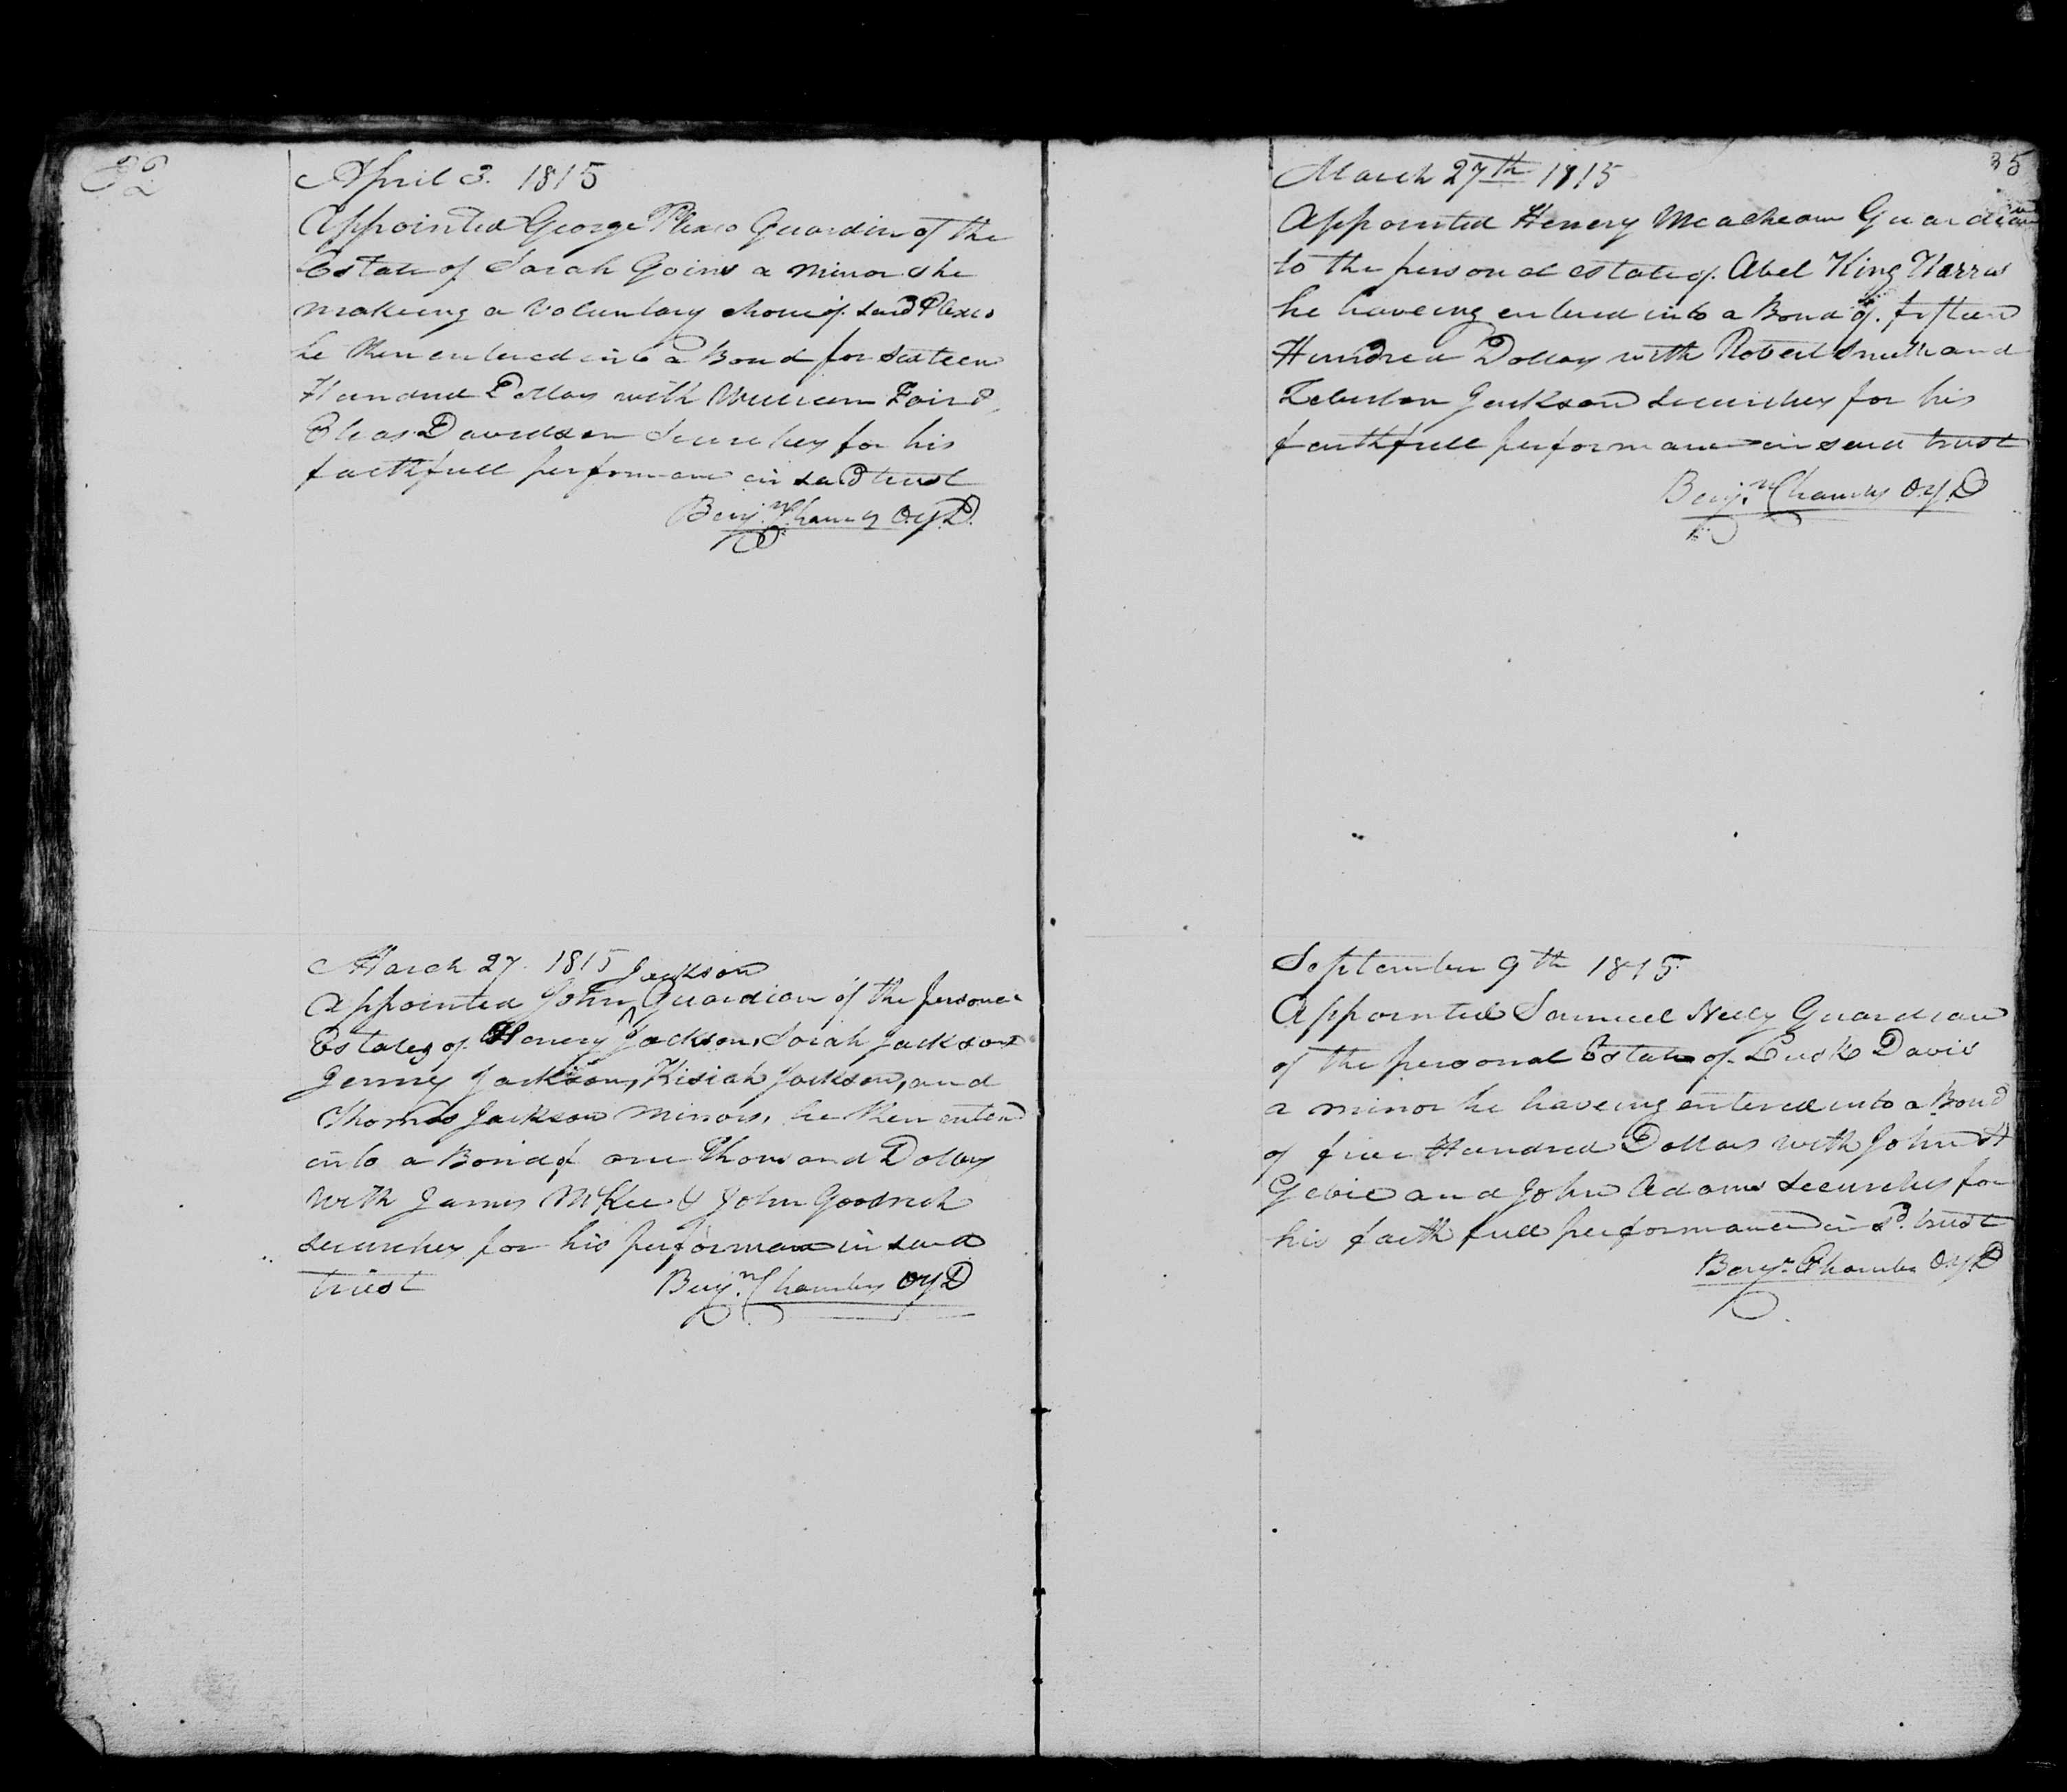 32
April 3. 1815
Appointed George Plexco Guardin of the
Estate of Sarah Goins a minor she
makeing a Voluntary choice of said Plexco
he then entered into a Bond for sixteen
Hundred Dollars with William Fair &
Elias Davidson Securites for his
faithfull performance in said trust
Benj.n Chambers O.Y.D.
March 27. 1815
Appointed John Jackson Guardian of the personal
Estates of Henery Jackson, Sarah Jackson
Jenny Jackson, Kisiah Jackson, and
Thomas Jackson minors, he then entered
into a Bond of one Thousand Dollars
with James McKee & John Goodrich
securites for his performance in said
trust
Benj.n Chambers OYD
35
March 27th 1815
Appointed Henery Meacheam Guardian
to the personal estate of Abel King Harris
he haveing entered into a Bond of fifteen
Hundred Dollars with Robert Smith and
Jackson securites for his
faithfull performance in said trust
Benj.n Chambers O.Y.D
September 9th 1815.
Appointed Samuel Neely Guardian
of the personal Estate of Lusk Davis
a minor he haveing entered into a Bond
of five Hundred Dollars with John
and John Adams securites for
his faithfull performance in sd. trust
Benjn. Chambers OYD